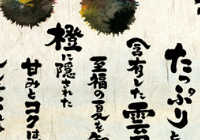 たっぷりと
含有した雲
至福の夏を
橙に隠された
甘みとコクは